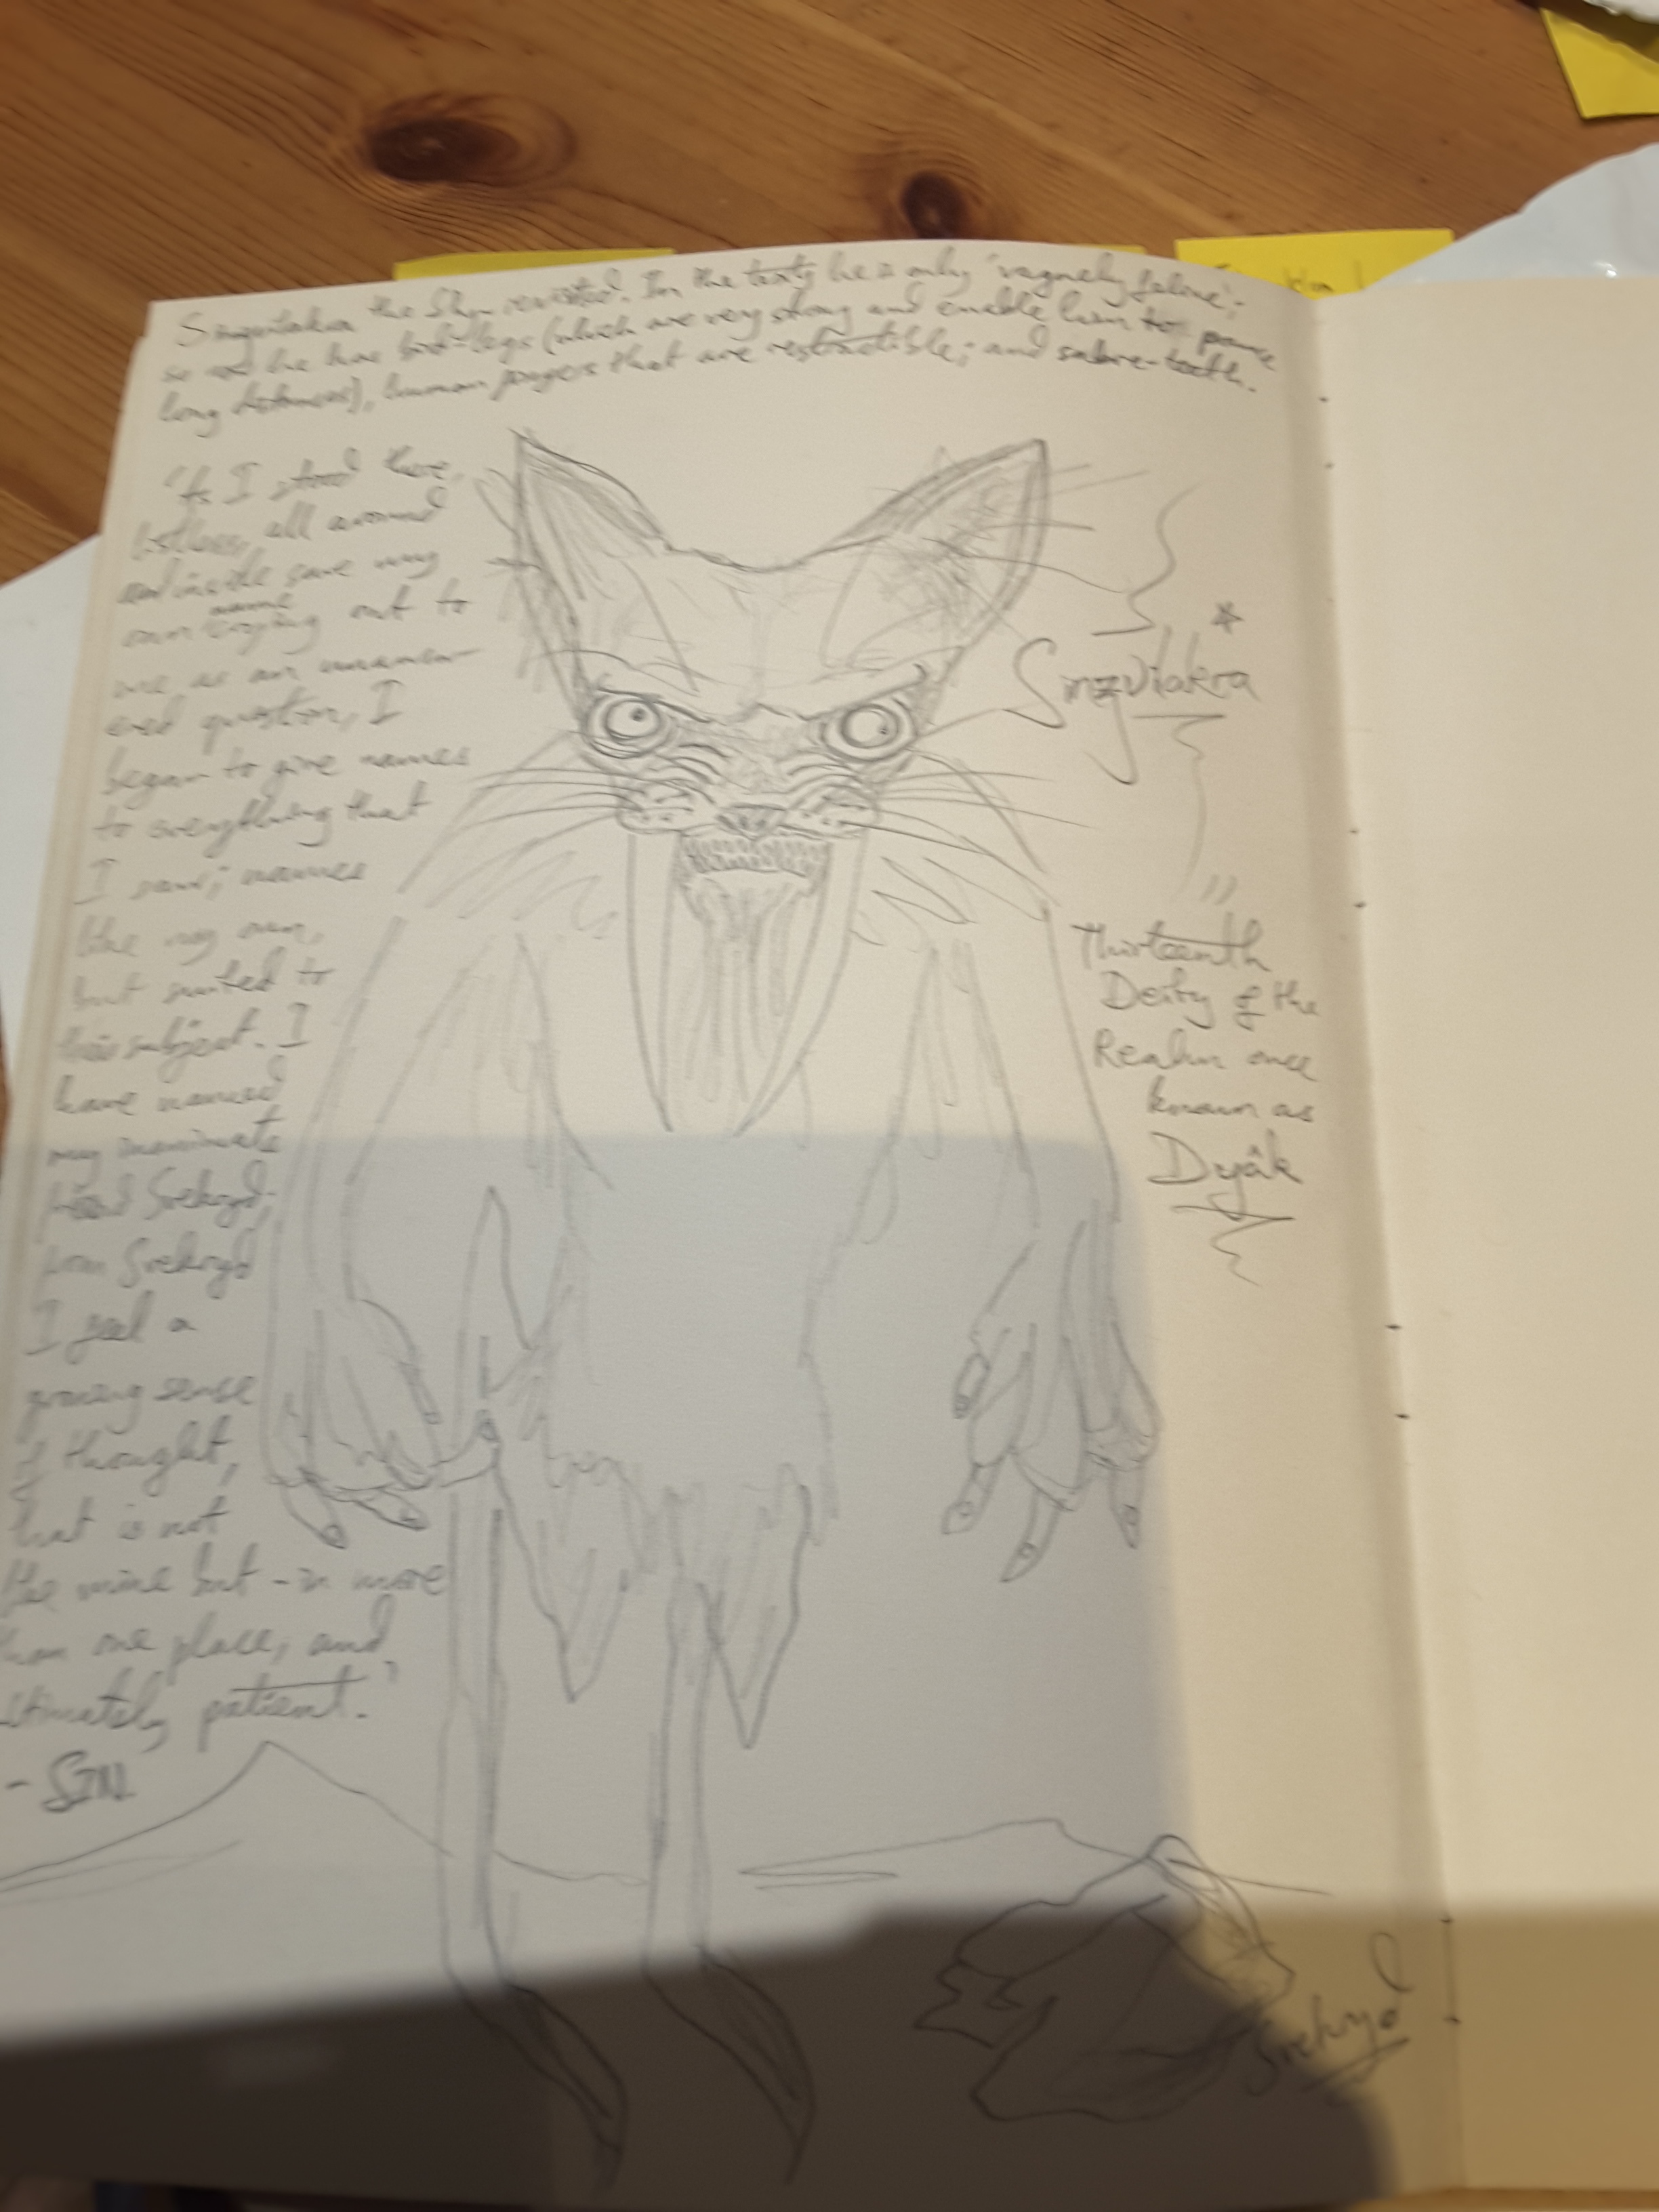 the revisited. In the texts he is only 'vaguely feline';
so he has legs (which are very strong and enable him to pounce
long distances), human that are and sabre-teeth.
"As I stood there,
listless, all around
and inside save my
own name crying out to
me as an unanswer-
ered question, I
began to give names
to everything that
I saw; names
like my own,
but suited to
subject. I
have named
my inanimate
Srekryd.
from Srekryd
I feel a
growing sense
of thought,
that is not
the mine but - in more
than one place, and
ultimately patient."
- SIN.
*
Singvilakra
"
Thirteenth
Deity of the
Realm once
known as
Dyâk
Srekryd